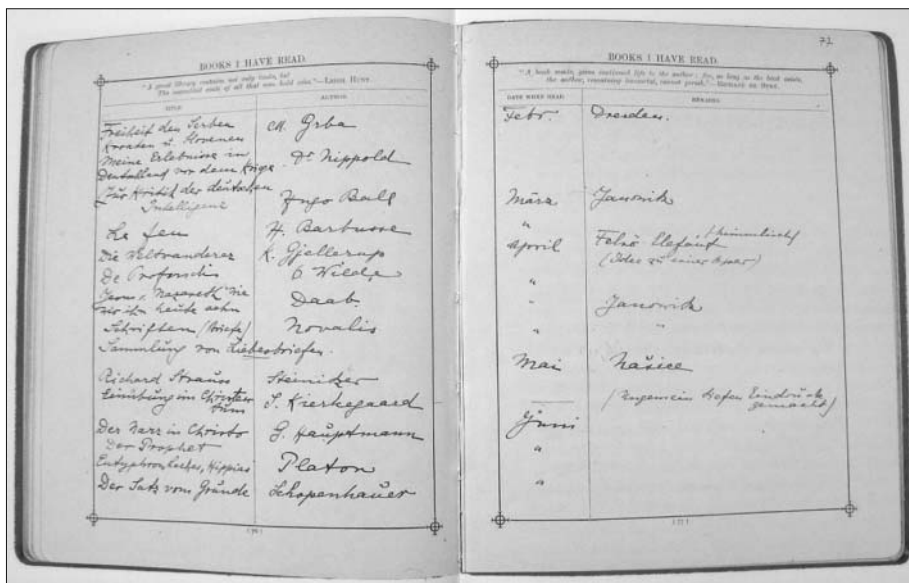 BOOKS I HAVE READ.
"A great library contains not only books, but
The assembled souls of all that men held wise."—LEIGH HUNT.
TITLE
AUTHOR
Freiheit den Serben M. Grba
Kroaten u. Slovenen
Meine Erlebnisse in Dr Nippold
Deutschland vor dem Kriege
Zur Kritik der deutschen Hugo Ball
Intelligenz
Le feu H. Barbusse
Die Weltwanderer K. Gjellerup
De Profundis O Wilde
Jesus v. Nazareth wie Daab
wir ihn heute sehn
Schriften (Briefe) Novalis
Sammlung von Liebesbriefen.
Richard Strauss Steinitzer
Einübung im Christen S. Kierkegaard
tum
Der Narr in Christo G. Hauptmann
Der Prophet
Eutyphron, Laches, Hippias Platon
Der Satz vom Grunde Schopenhauer
73
BOOKS I HAVE READ.
"A book made, gives continued life to the author; for, so long as the book exists,
the author, remaining immortal, cannot perish."—RICHARD DE BURY.
DATE WHEN READ
REMARKS
Febr. Dresden.
März Janowitz
"
April
(Idee zu einer Oper)
"
" Janowitz
" "
Mai Našice
(Ungemein tiefen Eindruck
gemacht)
Juni
"
"